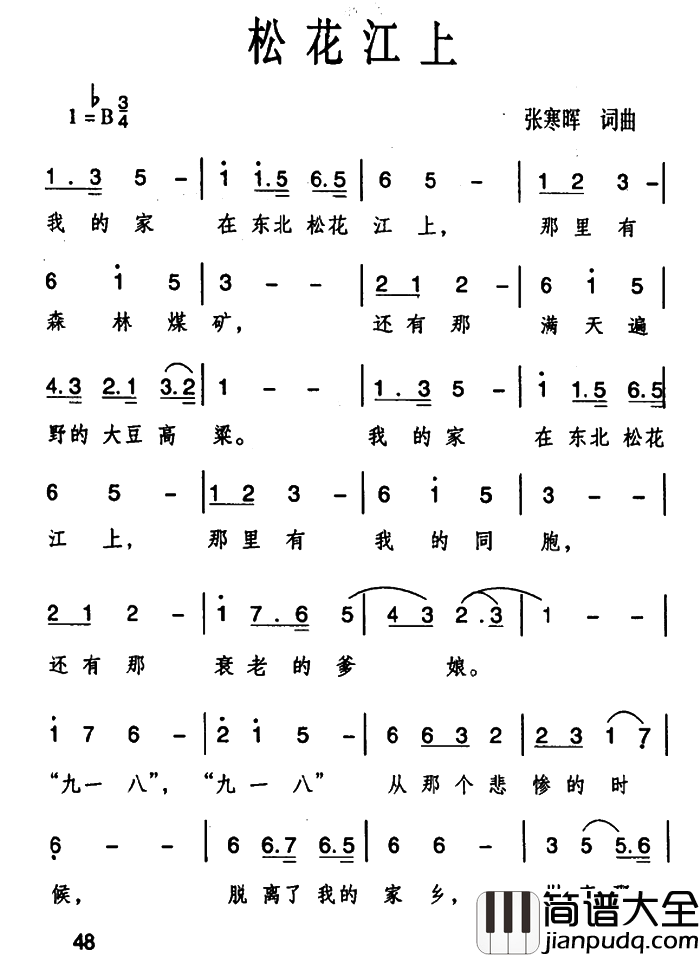 松花江上
1=♭B 3/4
张寒晖 词曲
1.3 5 - | i i.5 6.5 | 6 5 - | 1 2 3 - |
我的家 在东北松花江上，那里有
6 i 5 | 3 - - | 2 1 2 - | 6 i 5 |
森林煤矿，还有那满天遍
4.3 2.1 3.2 | 1 - - | 1.3 5 - | i 1.5 6.5 |
野的大豆高粱。我的家 在东北松花
6 5 - | 1 2 3 - | 6 i 5 | 3 - - |
江上，那里有我的同胞，
2 1 2 - | i 7.6 5 | 4 3 2.3 | 1 - - |
还有那衰老的爹娘。
i 7 6 - | 2 i 5 - | 6 6 3 2 | 2 3 1 7 |
“九一八”，“九一八” 从那个悲惨的时
6 - - | 6 6.7 6.5 | 6 6 - | 3 5 5.6 |
候，脱离了我的家乡，
48
简谱大全
jianpudq.com